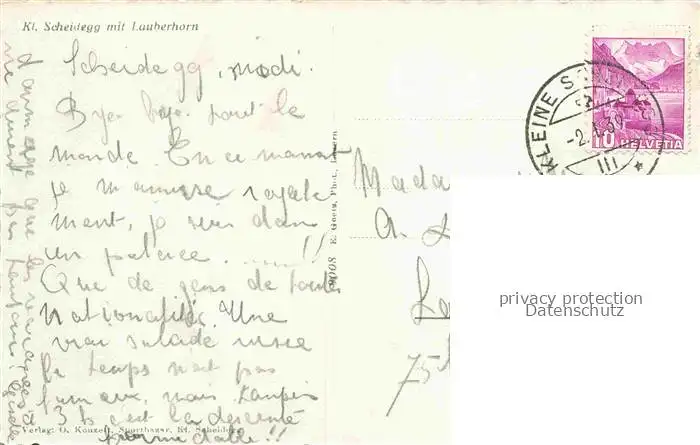 Kl. Scheidegg mit Lauberhorn
Scheidegg, midi.
Bye bye tout le
monde. En ce moment
je m'amuse royale
ment, je suis dans
un palace ......!!
Que de gens de toutes
nationalités. Une
vrai salade russe
le temps n'est pas
fameux, mais tanpis
à 3 h c'est la descente
formidable!!
que les
ne durent pas
Verlag: O. Konzett, Sporthazar, Kl. Scheidegg
9008 E. Goetz, Phot., Luzern
Mada
A. L
75
KLEINE S
-2.1.39
III
10 HELVETIA
privacy protection
Datenschutz